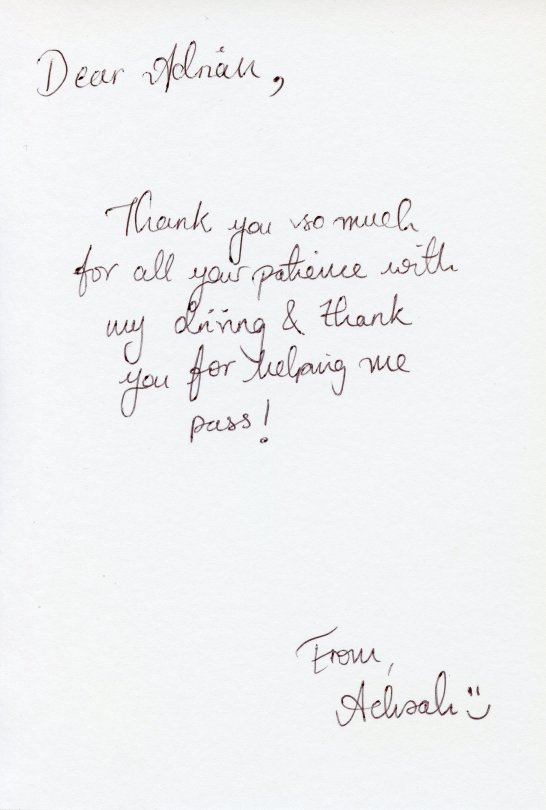 Dear Adrian,
Thank you so much
for all your patience with
my driving & thank
you for helping me
pass!
From,
Achsah